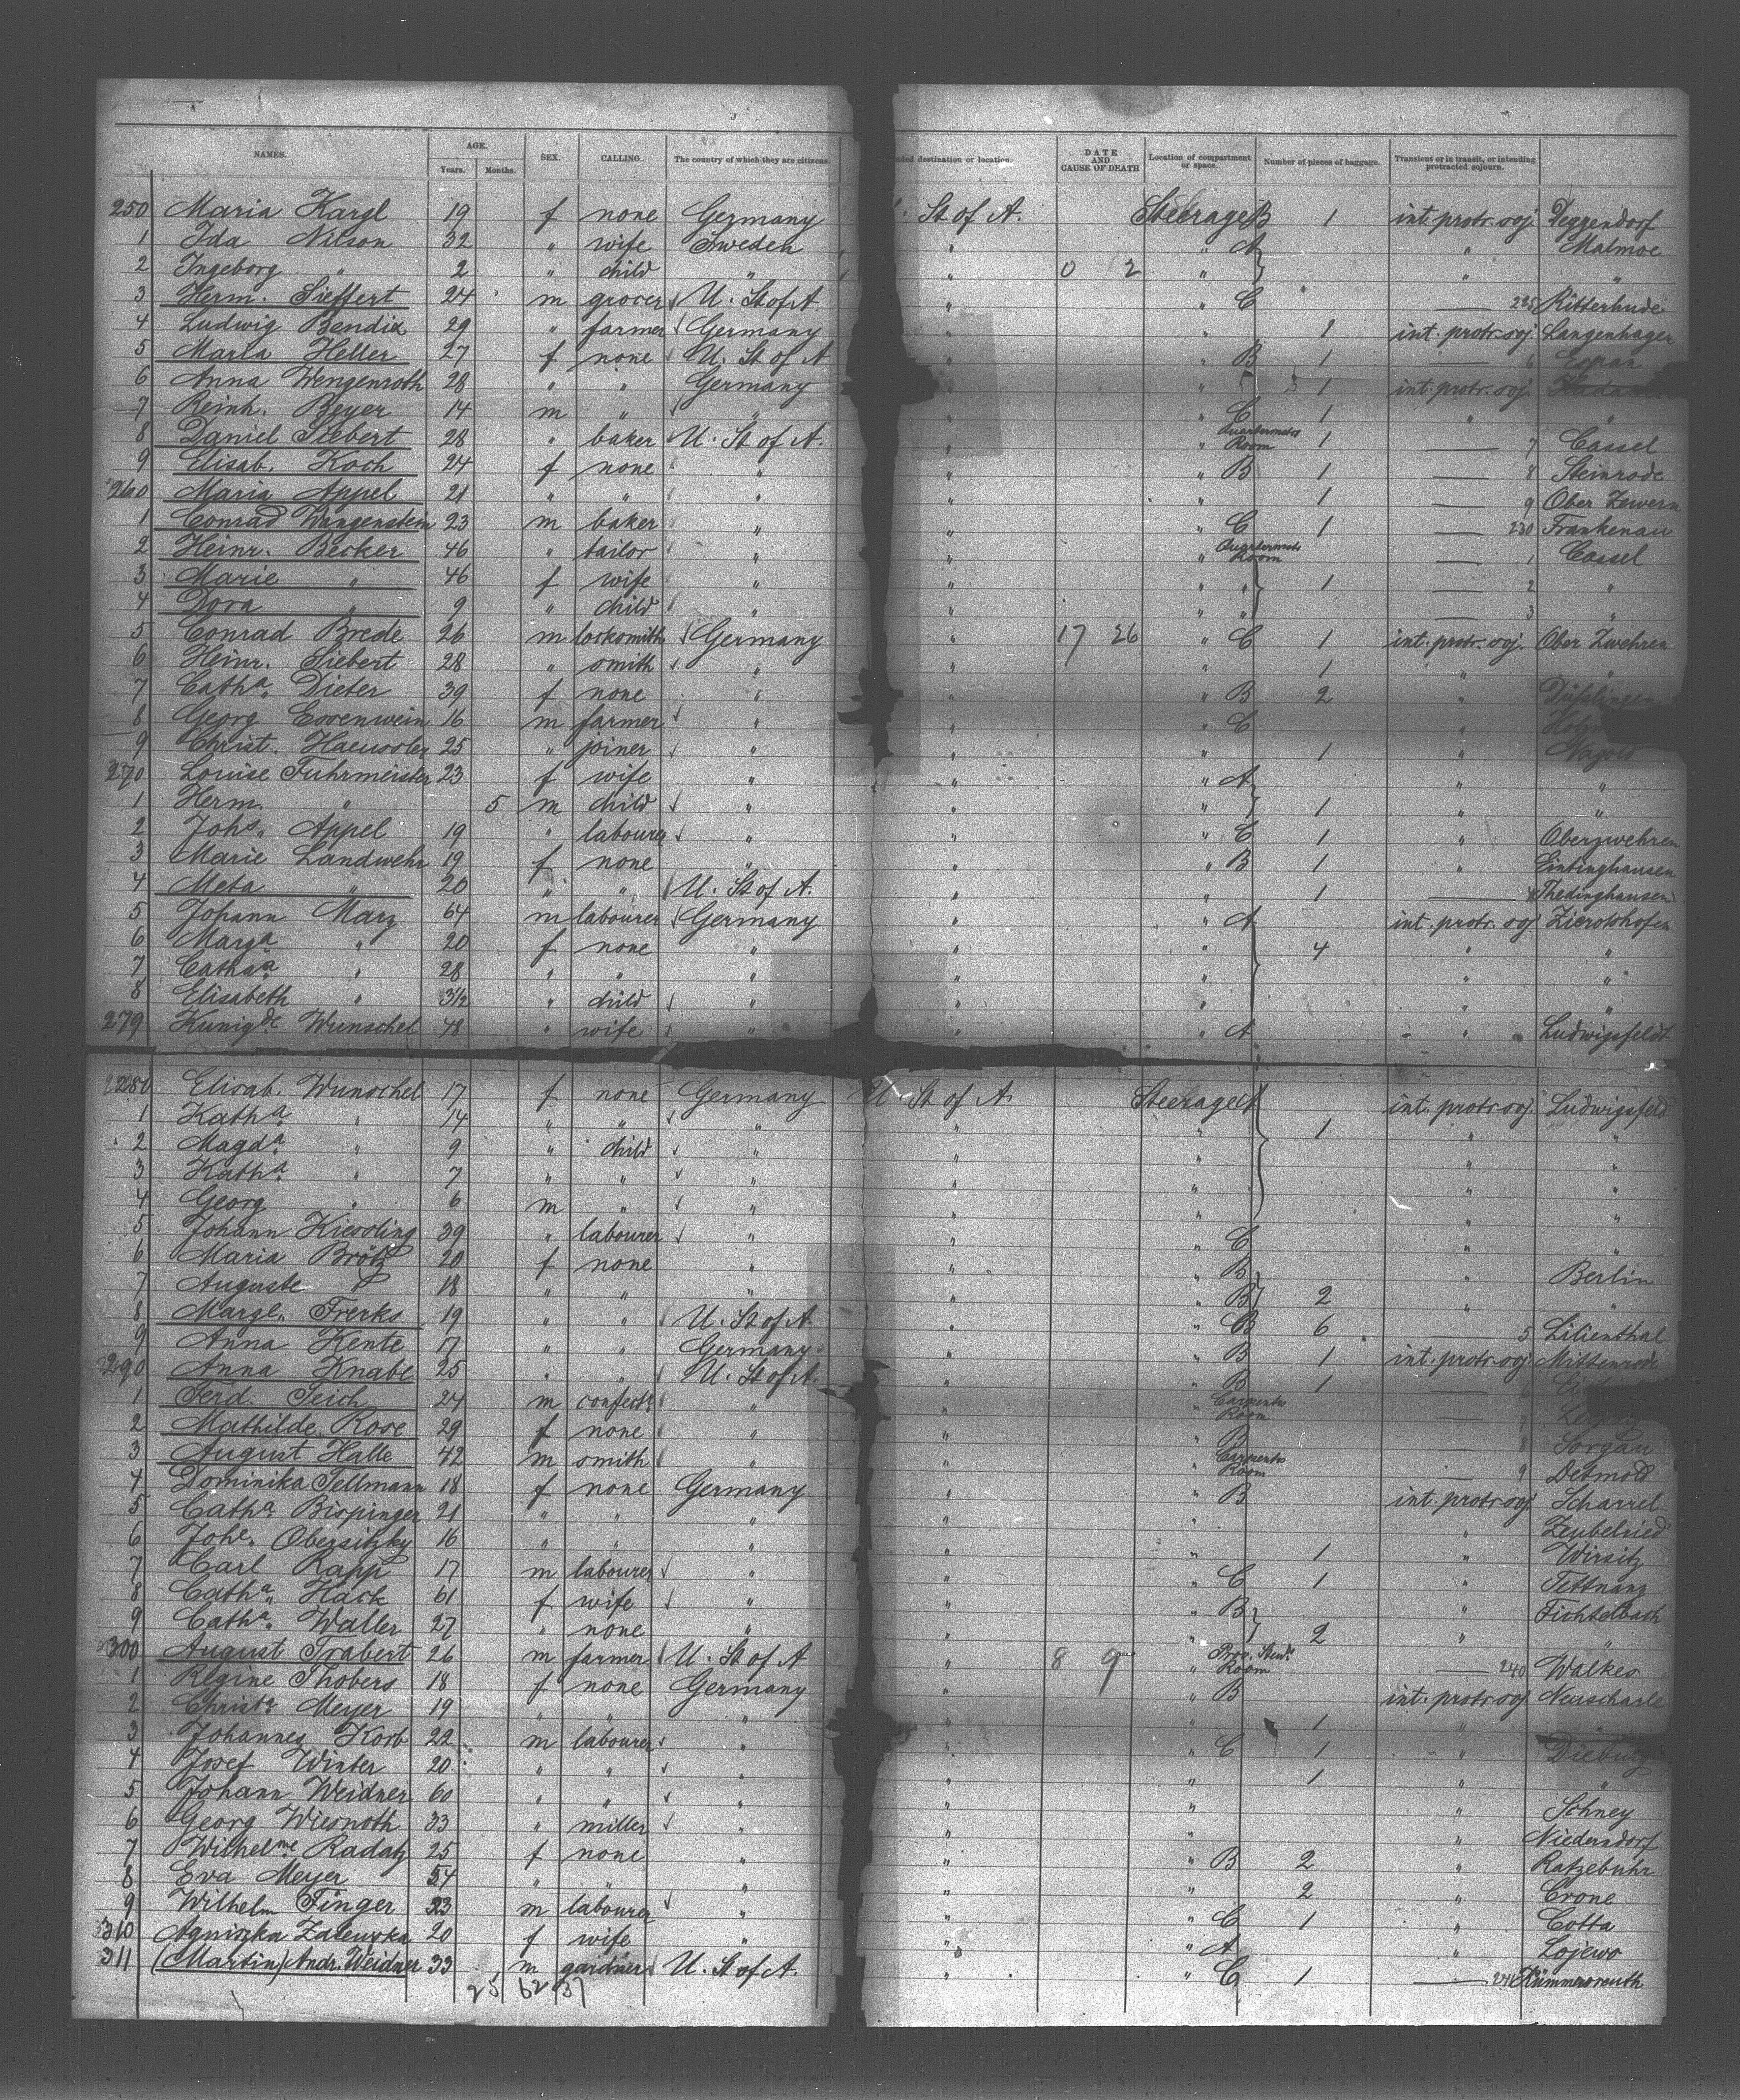 NAMES. AGE. Years. Months. SEX. CALLING. The country of which they are citizens. nded destination or location. DATE AND CAUSE OF DEATH Location of compartment or space. Number of pieces of baggage. Transient or in transit, or intending protracted sojourn.
250 Maria Kargl 19 f none Germany St of A. Steerage B 1 int. protr. soj. Deggendorf
1 Ida Nilson 32 " wife Sweden " " A " Malmoe
2 Ingeborg " 2 " child " " 0 2 " " "
3 Herm. Sieffert 24 m grocer U. St of A " " C — 225 Ritterhude
4 Ludwig Bendix 29 " farmer Germany " " 1 int. protr. soj. Langenhagen
5 Maria Heller 27 f none U. St of A " " B 1 — 6
6 Anna Wengenroth 28 " " Germany " " 1 int. protr. soj.
7 Reinh. Beyer 14 m " " " " C 1 " "
8 Daniel Siebert 28 " baker U. St of A. " " Quartermstrs Room 1 — 7 Cassel
9 Elisab. Koch 24 f none " " " B 1 — 8 Steinrode
260 Maria Appel 21 " " " " " 1 — 9 Ober Zwern
1 Conrad Wangenstein 23 m baker " " " C 1 — 230 Frankenau
2 Heinr. Becker 46 " tailor " " " Quartermstrs Room — 1 Cassel
3 Marie " 46 f wife " " " " 1 — 2 "
4 Dora " 9 " child " " " " — 3 "
5 Conrad Brede 26 m locksmith Germany " 17 26 " C 1 int. protr. soj. Ober Zwehren
6 Heinr. Siebert 28 " smith " " " 1 " "
7 Catha. Dieter 39 f none " " " B 2 "
8 Georg Essenwein 16 m farmer " " " C "
9 Christ. Haeussler 25 " joiner " " " 1 " Nagold
270 Louise Fuhrmeister 23 f wife " " " A " "
1 Herm. " 5 m child " " " 1 " "
2 Johs. Appel 19 " labourer " " " C 1 " Oberzwehren
3 Marie Landwehr 19 f none " " " B 1 " Eintinghausen
4 Meta " 20 " " U. St of A. " " 1 — 4 Thedinghausen
5 Johann Marz 64 m labourer Germany " " A int. protr. soj. Zierotshofen
6 Marga " 20 f none " " " 4 " "
7 Catha " 28 " " " " " " "
8 Elisabeth " 3½ " child " " " " "
279 Kunigde Wunschel 48 " wife " " " A " Ludwigsfeldt
280 Elisab. Wunschel 17 f none Germany U. St of A. Steerage A int. protr. soj. Ludwigsfeld
1 Katha. " 14 " " " " " 1 " "
2 Magda. " 9 " child " " " " "
3 Katha. " 7 " " " " " " "
4 Georg " 6 m " " " " " "
5 Johann Kiessling 39 " labourer " " " C " "
6 Maria Brötz 20 f none " " " B " Berlin
7 Auguste " 18 " " " " " B 2 " "
8 Margt. Frerks 19 " " U. St of A. " " B 6 — 5 Lilienthal
9 Anna Kente 17 " " Germany " " B 1 int. protr. soj. Mittenrode
290 Anna Knabe 25 " " U. St of A. " " B 1 —
1 Ferd. Teich 24 m confectr. " " " Carpenters Room —
2 Mathilde Rose 29 f none " " " B — Sorgau
3 August Halle 42 m smith " " " Carpenters Room — 9 Detmold
4 Dominika Sellmann 18 f none Germany " " B int. protr. soj. Scharrel
5 Catha. Bispinger 21 " " " " " " Zeubelried
6 Johe. Obersitzky 16 " " " " " 1 " Wirsitz
7 Carl Rapp 17 m labourer " " " C 1 " Tettnang
8 Catha. Hack 61 f wife " " " B " Fichtelbach
9 Catha. Waller 27 " none " " " 2 " "
300 August Trabert 26 m farmer U. St of A " 8 9 " Prov. Stew. Room — 240 Walkes
1 Regine Thobers 18 f none Germany " " B int. protr. soj. Neuscharle
2 Christa. Meyer 19 " " " " 1 "
3 Johannes Korb 22 m labourer " " " C 1 " Dieburg
4 Josef Winter 20 " " " " " 1 " "
5 Johann Weidner 60 " " " " " " Schney
6 Georg Wiesnoth 33 " miller " " " " Niederndorf
7 Wilhelme. Radatz 25 f none " " " B 2 " Ratzebuhr
8 Eva Meyer 54 " " " " " 2 " Crone
9 Wilhelm Finger 33 m labourer " " " C 1 " Cotta
310 Agniszka Zalewska 20 f wife " " " A " Lojewo
311 (Martin) Andr. Weidner 33 m gardner U. St of A. " " C 1 — 241 Kümmersreuth
25 62 37